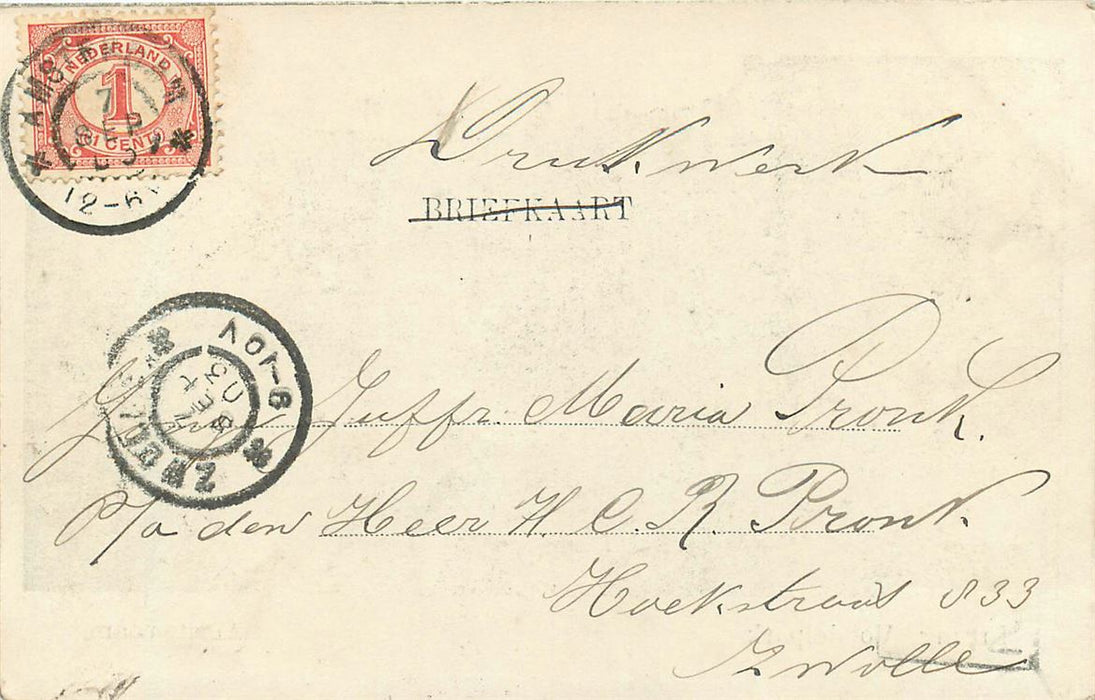 NEDERLAND
1
(1 CENT)
7
SEP
12-6
Drukwerk
BRIEFKAART
9-10V
8 SEP 03
ZWOLLE
Juffr. Maria Pronk.
P/a den Heer H. C. R. Pronk.
Hoekstraat 833
Zwolle